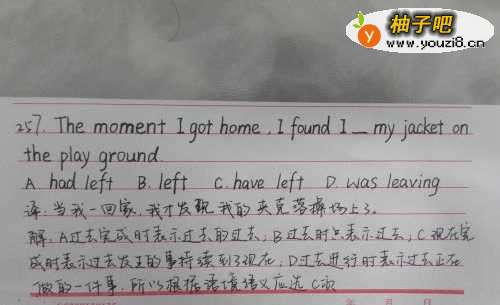 柚子吧
www.youzi8.cn
257. The moment I got home, I found I _ my jacket on
the play ground
A had left B. left C. have left D. was leaving
译: 当我一回家, 我才发现我的夹克落操场上了.
解: A过去完成时表示过去的过去; B过去时只表示过去; C现在完
成时表示过去发生的事持续到了现在; D过去进行时表示过去正在
做的一件事. 所以根据语境语义应选C项
年 月 日